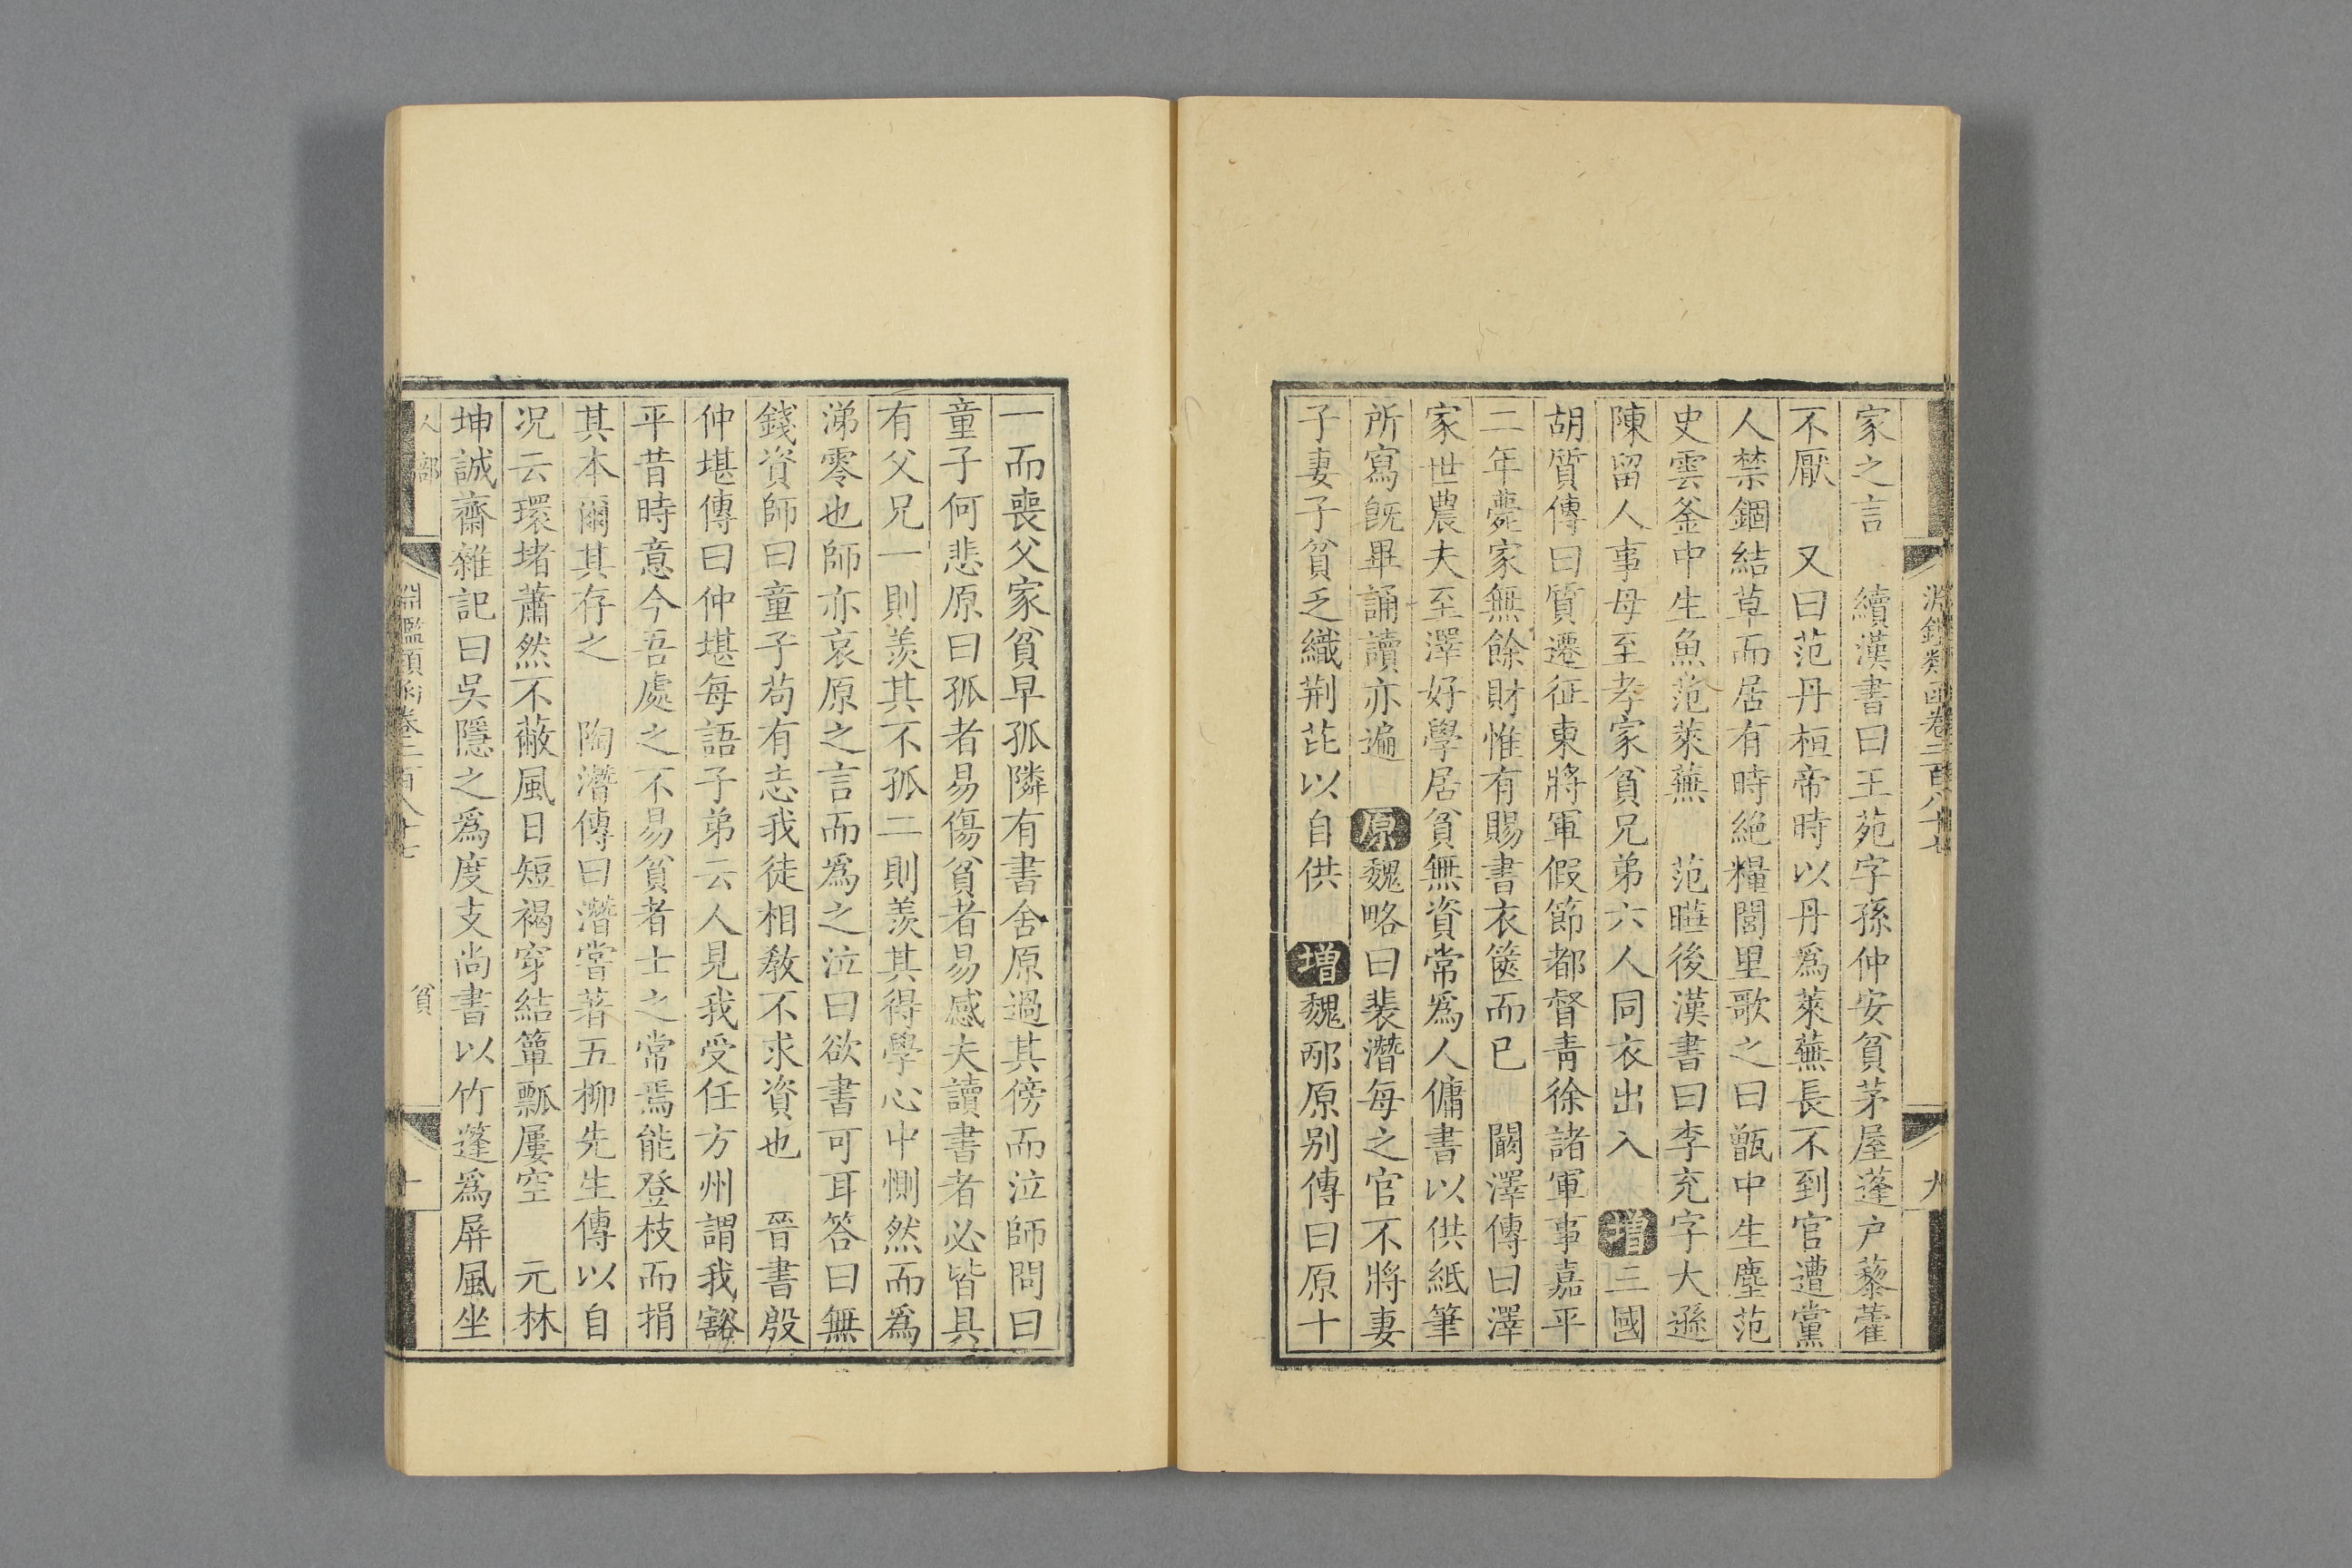 淵鑑類函卷二百八十七
九
家之言　續漢書曰王苑字孫仲安貧茅屋蓬戸藜藿
不厭　又曰范丹桓帝時以丹爲萊蕪長不到官遭黨
人禁錮結草而居有時絶糧閭里歌之曰甑中生塵范
史雲釜中生魚范萊蕪　范曄後漢書曰李充字大遜
陳留人事母至孝家貧兄弟六人同衣出入　增三國
胡質傳曰質遷征東將軍假節都督青徐諸軍事嘉平
二年薨家無餘財惟有賜書衣篋而已　闞澤傳曰澤
家世農夫至澤好學居貧無資常爲人傭書以供紙筆
所寫旣畢誦讀亦遍　原魏略曰裴潛每之官不將妻
子妻子貧乏織荆芘以自供　增魏邴原別傳曰原十
一而喪父家貧早孤隣有書舍原過其傍而泣師問曰
童子何悲原曰孤者易傷貧者易感夫讀書者必皆具
有父兄一則羡其不孤二則羡其得學心中惻然而爲
涕零也師亦哀原之言而爲之泣曰欲書可耳答曰無
錢資師曰童子苟有志我徒相敎不求資也　晉書殷
仲堪傳曰仲堪每語子弟云人見我受任方州謂我豁
平昔時意今吾處之不易貧者士之常焉能登枝而捐
其本爾其存之　陶潛傳曰潛嘗著五柳先生傳以自
况云環堵蕭然不蔽風日短褐穿結簞瓢屢空　元林
坤誠齋雜記曰吳隱之爲度支尚書以竹蓬爲屏風坐
人部
淵鑑類函卷二百八十七
貧
十